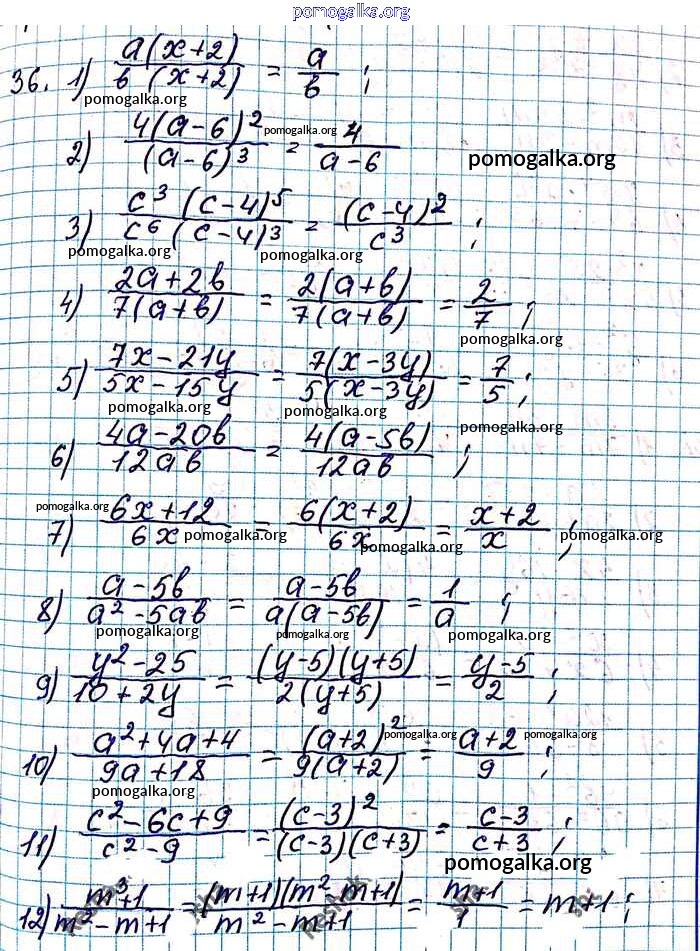 pomogalka.org
36. 1) a(x+2)/b(x+2) = a/b ;
pomogalka.org
2) 4(a-6)²/(a-6)³ = 4/(a-6)
pomogalka.org
pomogalka.org
3) c³(c-4)⁵/c⁶(c-4)³ = (c-4)²/c³ ;
pomogalka.org pomogalka.org
4) (2a+2b)/7(a+b) = 2(a+b)/7(a+b) = 2/7 ;
pomogalka.org
5) (7x-21y)/(5x-15y) = 7(x-3y)/5(x-3y) = 7/5 ;
pomogalka.org pomogalka.org
pomogalka.org
6) (4a-20b)/12ab = 4(a-5b)/12ab ;
pomogalka.org
7) (6x+12)/6x = 6(x+2)/6x = (x+2)/x ;
pomogalka.org pomogalka.org pomogalka.org
8) (a-5b)/(a²-5ab) = (a-5b)/a(a-5b) = 1/a ;
pomogalka.org pomogalka.org pomogalka.org
9) (y²-25)/(10+2y) = (y-5)(y+5)/2(y+5) = (y-5)/2 ;
pomogalka.org pomogalka.org
10) (a²+4a+4)/(9a+18) = (a+2)²/9(a+2) = (a+2)/9 ;
pomogalka.org
11) (c²-6c+9)/(c²-9) = (c-3)²/(c-3)(c+3) = (c-3)/(c+3) ;
pomogalka.org
12) (m³+1)/(m²-m+1) = (m+1)(m²-m+1)/(m²-m+1) = (m+1)/1 = m+1 ;